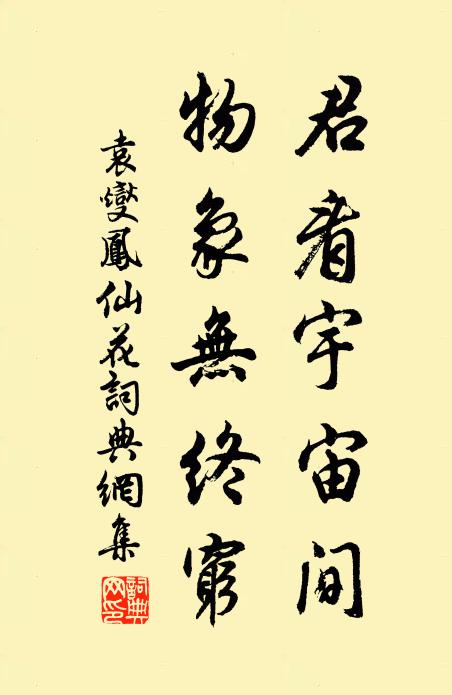 君看宇宙间
物象無终窮
袁燮鳳仙花詞典網集
詞典
网印